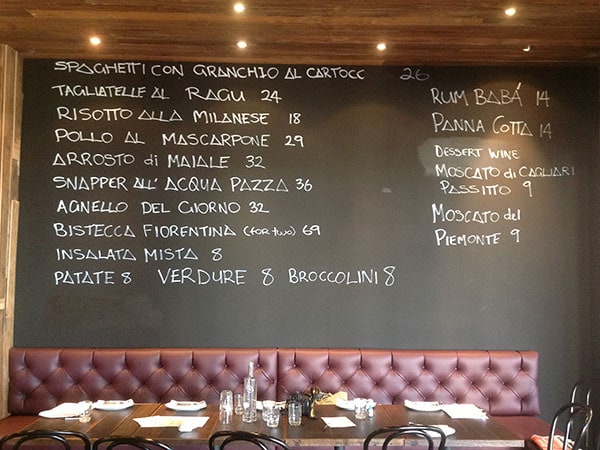 SPAGHETTI CON GRANCHIO AL CARTOCC 26
TAGLIATELLE AL RAGU 24
RISOTTO ALLA MILANESE 18
POLLO AL MASCARPONE 29
ARROSTO di MAIALE 32
SNAPPER ALL' ACQUA PAZZA 36
AGNELLO DEL GIORNO 32
BISTECCA FIORENTINA (for two) 69
INSALATA MISTA 8
PATATE 8 VERDURE 8 BROCCOLINI 8
RUM BABÁ 14
PANNA COTTA 14
DESSERT WINE
MOSCATO di CAGLIARI
PASSITO 9
MOSCATO del
PIEMONTE 9